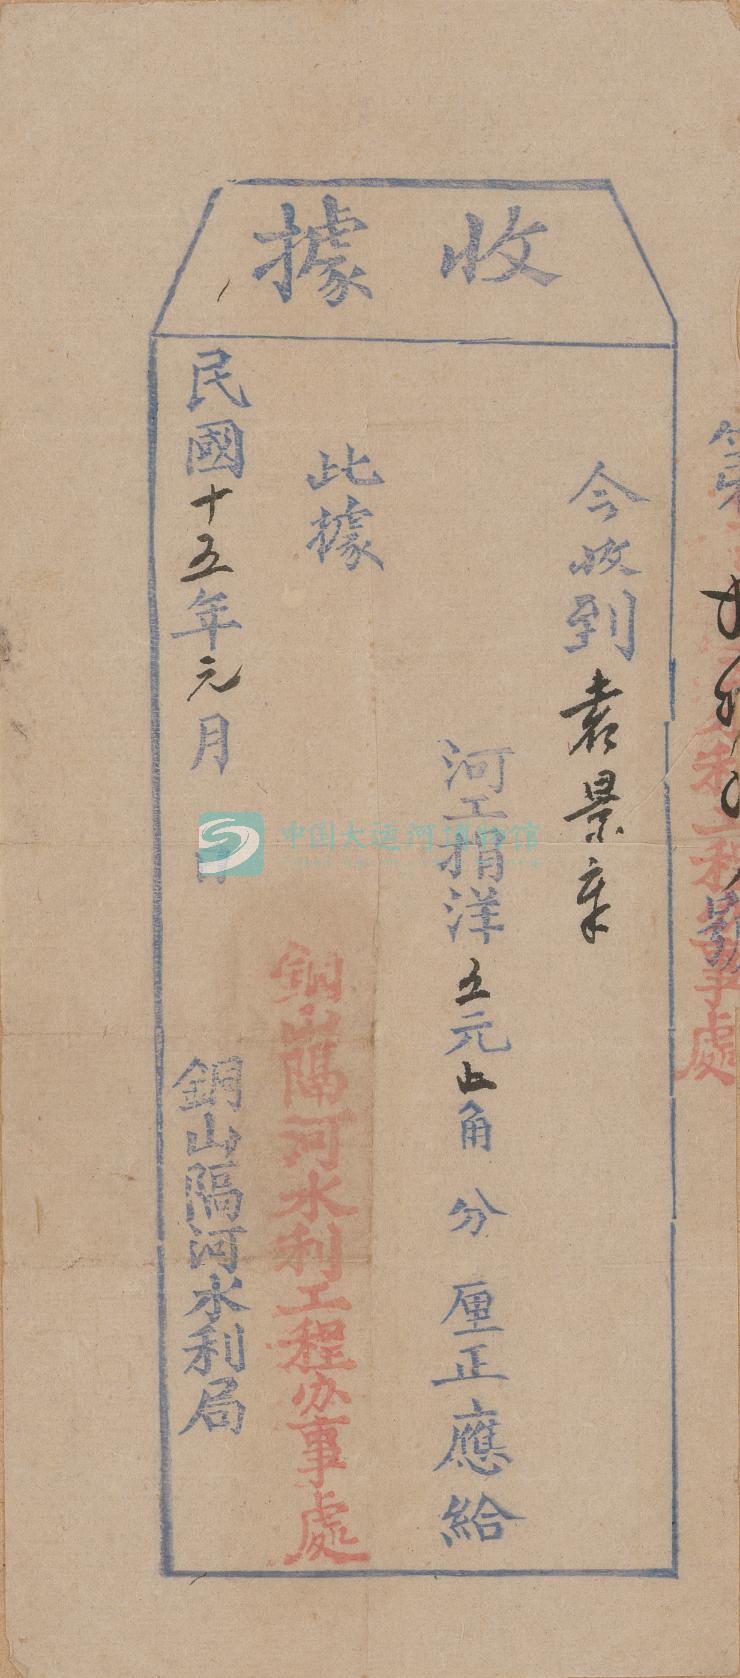 收據
第
號
今收到袁景章
河工捐洋五元正角分厘正應給
此據
銅山隔河水利工程办事處
民國十五年元月日
銅山隔河水利局
中国大运河博物馆